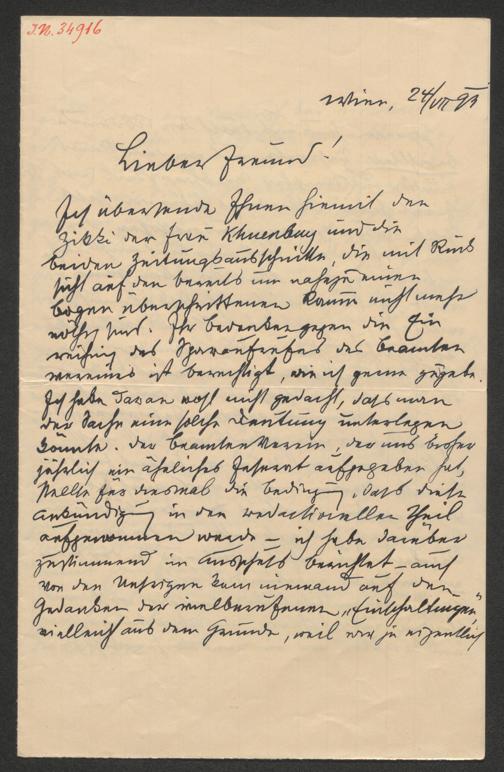 J.N. 34916
Wien, 24/VII 93
Lieber Freund!
Ich übersende Ihnen hiemit den
der Frau Khuenburg und die
beiden Zeitungsausschnitte, die mit Rück
sicht auf den bereits um nahezu einen
Bogen überschrittenen Raum nicht mehr
nöthig sind. Ihr Bedenken gegen die Ein
reihung des Sparaufrufes des Beamten
vereines ist berechtigt, wie ich gerne zugebe.
Ich habe daran wohl nicht gedacht, dass man
der Sache eine solche Deutung unterlegen
könnte. Der Beamtenverein, der uns bisher
jährlich ein ähnliches Inserat aufgegeben hat,
stellte für diesmal die Bedingung, dass diese
Ankündigung in den redactionellen Theil
aufgenommen werde – ich habe darüber
zustimmend im Ausschuß berichtet – auch
von den Unsrigen kam niemand auf den
Gedanken der vielberufenen „Einschaltungen“,
vielleicht aus dem Grunde, weil wir ja eigentlich